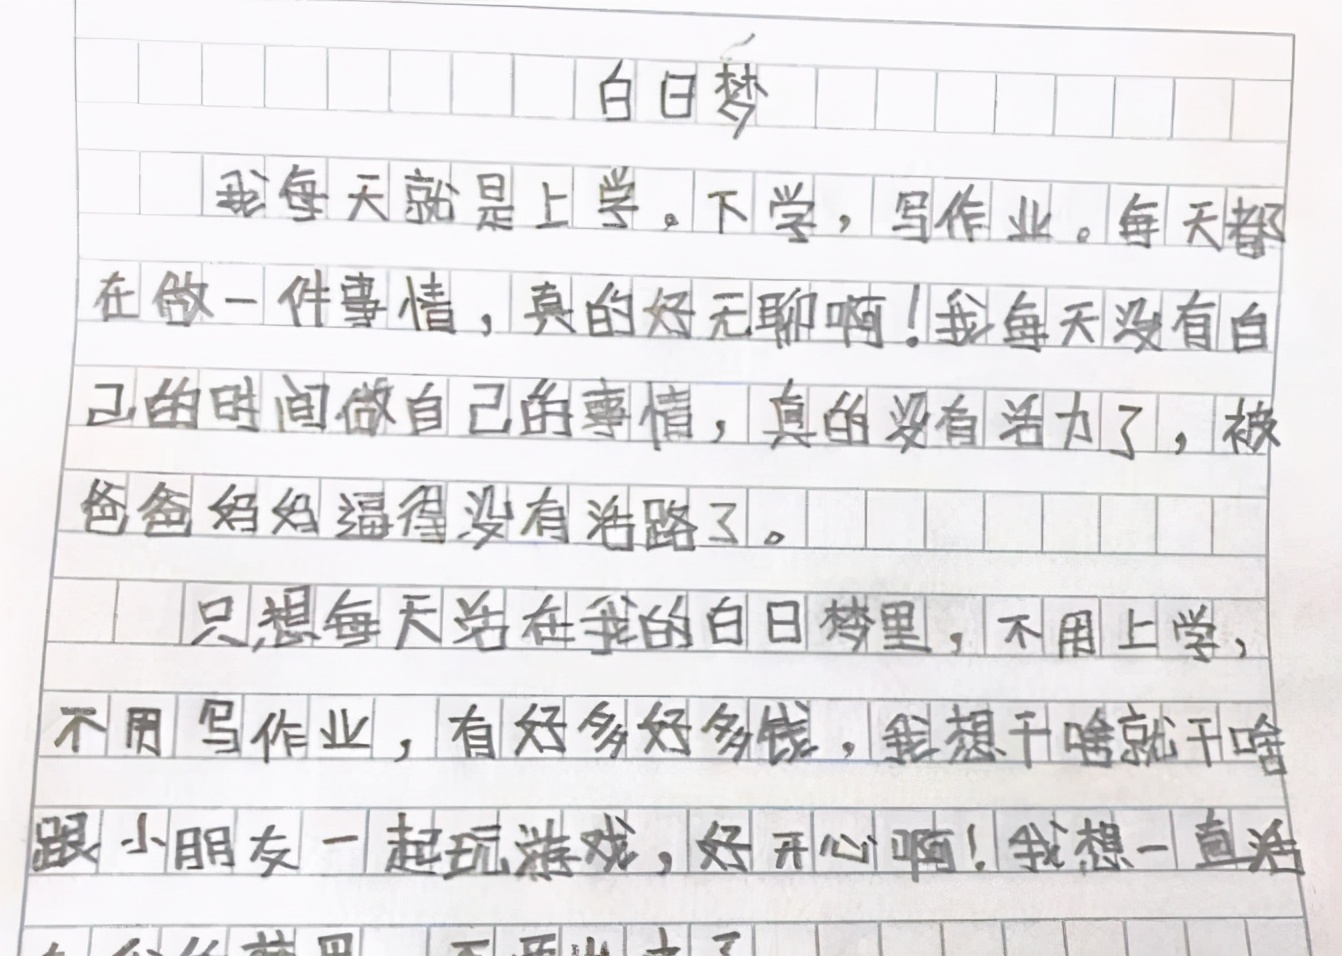 白日梦
我每天就是上学。下学，写作业。每天都
在做一件事情，真的好无聊啊！我每天没有白
己的时间做自己的事情，真的没有活力了，被
爸爸妈妈逼得没有活路了。
只想每天活在我的白日梦里，不用上学，
不用写作业，有好多好多钱，我想干啥就干啥
跟小朋友一起玩游戏，好开心啊！我想一直活